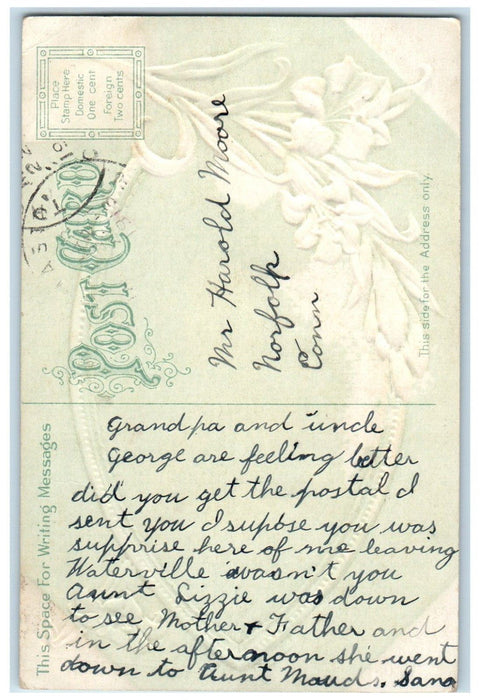 Place
Stamp Here
Domestic
One cent
Foreign
Two cents
POST CARD
This side for the Address only.
Mr Harold Moore
Norfolk
Conn
This Space For Writing Messages
Grandpa and uncle
George are feeling better
did you get the postal I
sent you I supose you was
supprise here of me leaving
Waterville wasn't you
Aunt Lizzie was down
to see Mother & Father and
in the afternoon she went
down to Aunt Mauds.